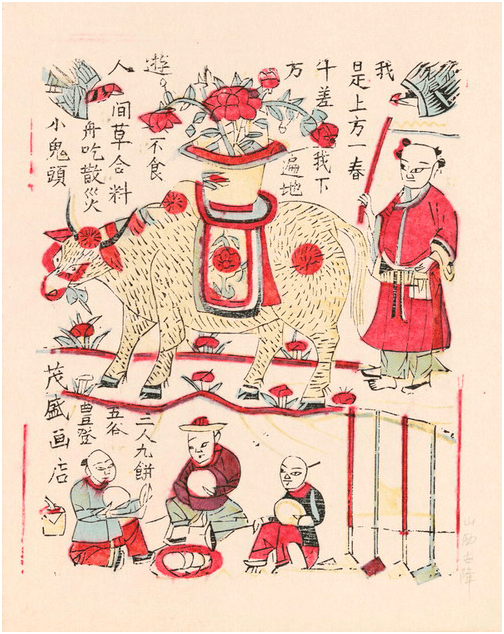 我
是上方一春
牛差我下
方遍地
遊。不食
人間草合料
舟吃散災
小鬼頭
三人九餅
五谷
豊登
茂盛画店
山西